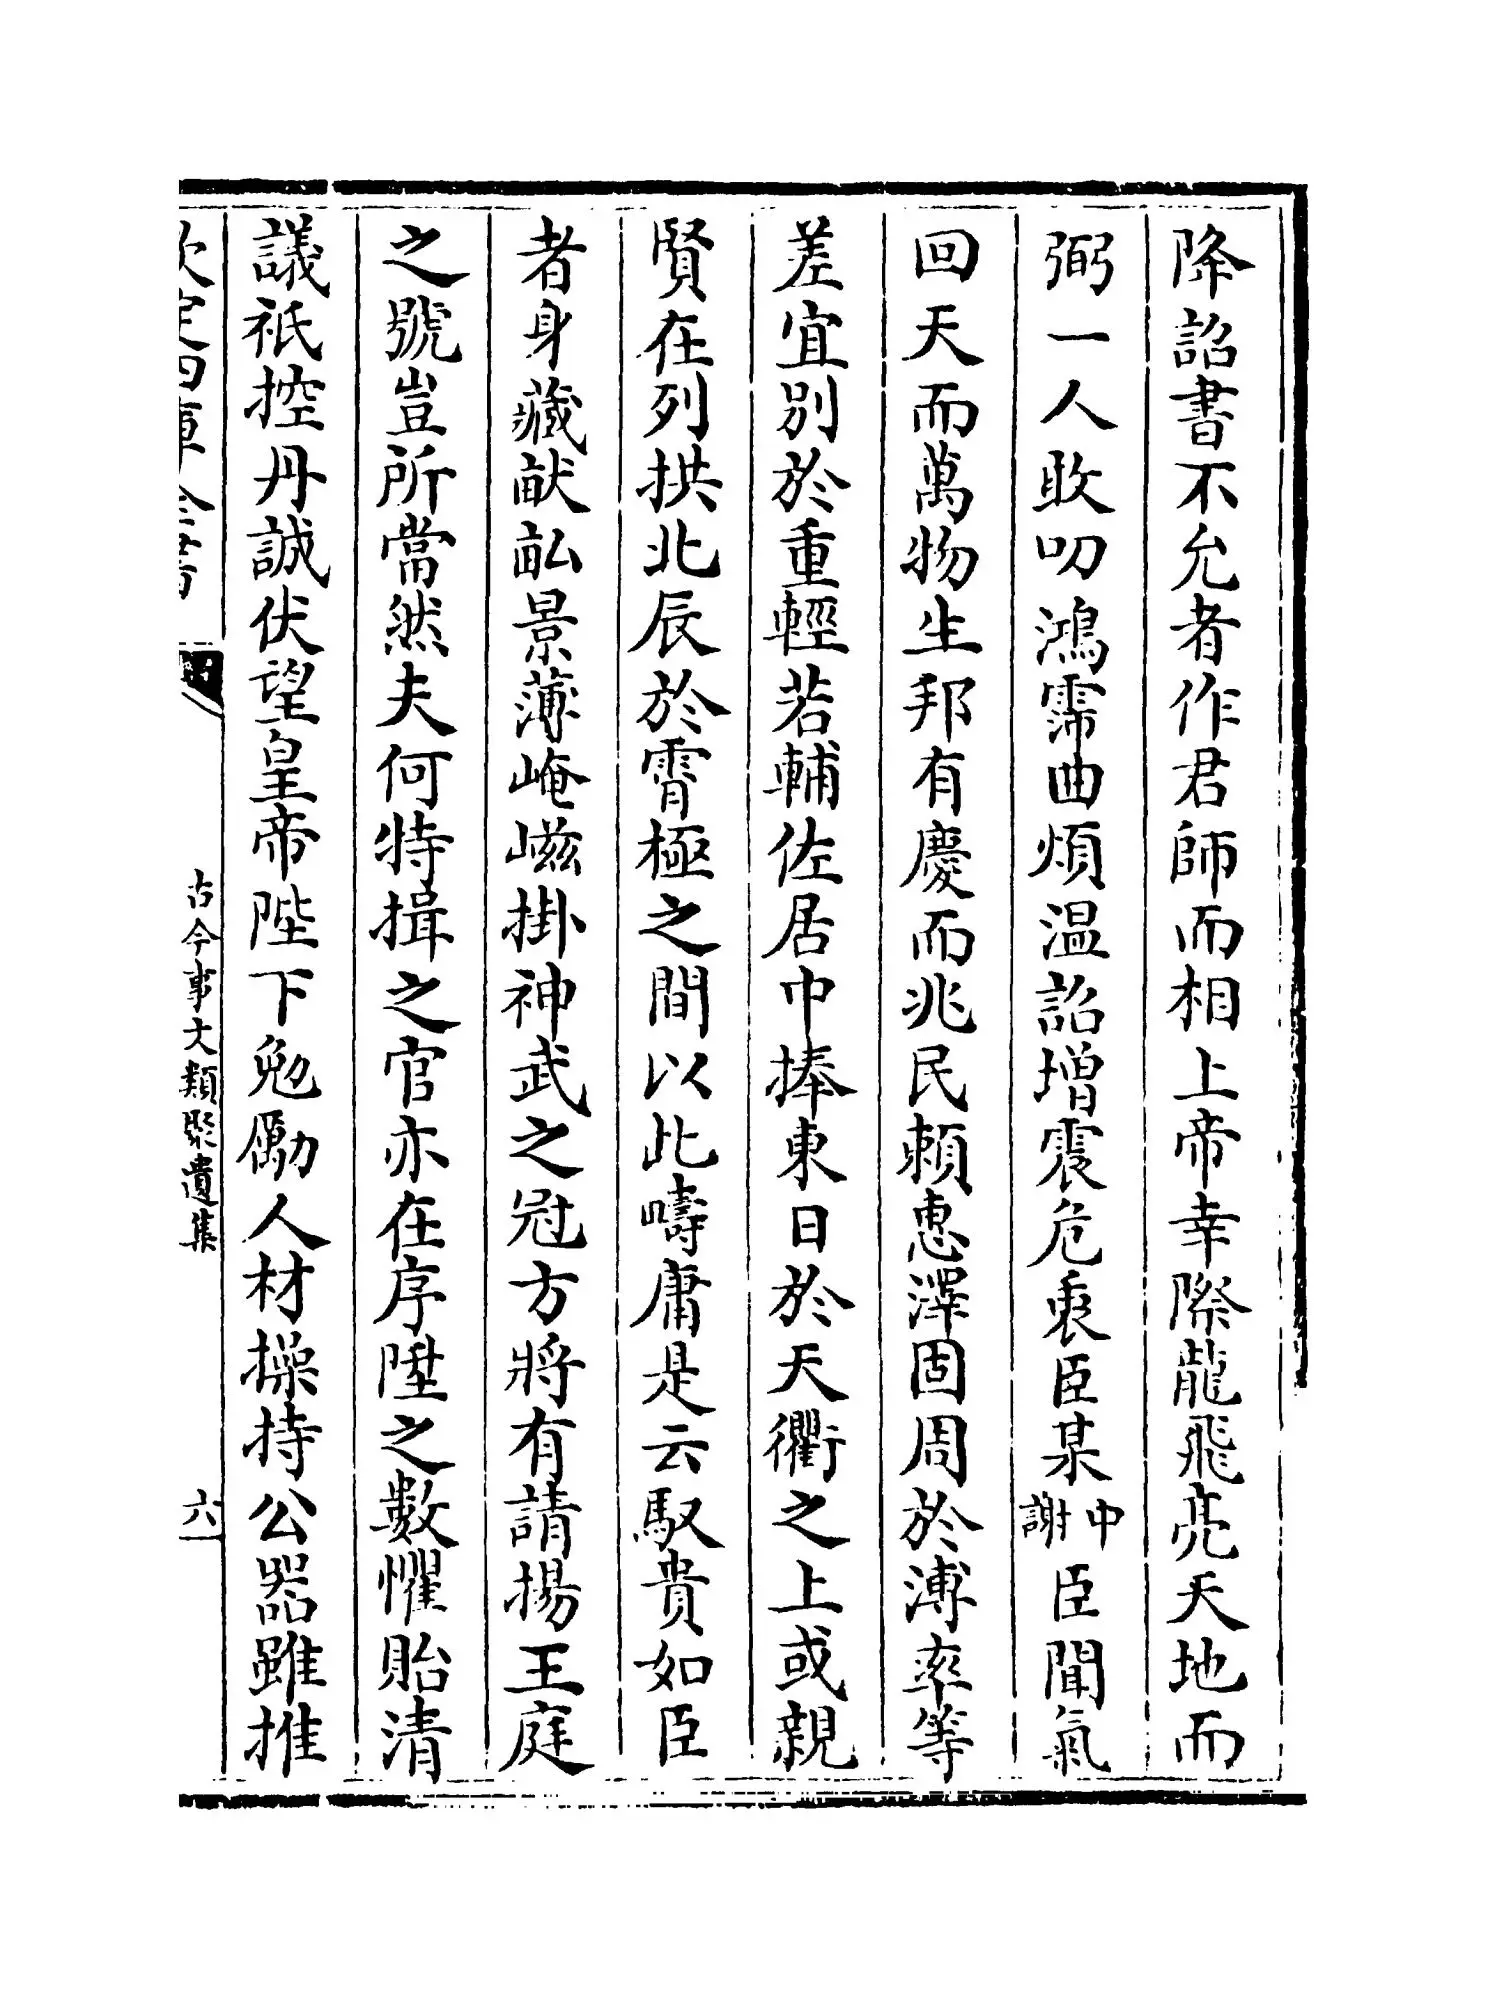 降詔書不允者作君師而相上帝幸際龍飛亮天地而
弼一人敢叨鴻霈曲煩温詔增震危衷臣某中謝臣聞氣
回天而萬物生邦有慶而兆民賴惠澤固周於溥率等
差宜别於重輕若輔佐居中捧東日於天衢之上或親
賢在列拱北辰於霄極之間以此疇庸是云馭貴如臣
者身藏畎畝景薄崦嵫掛神武之冠方將有請揚王庭
之號豈所當然夫何特揖之官亦在序陞之數懼貽清
議祇控丹誠伏望皇帝陛下勉勵人材操持公器雖推
欽定四庫全書
古今事文類聚遺集
六